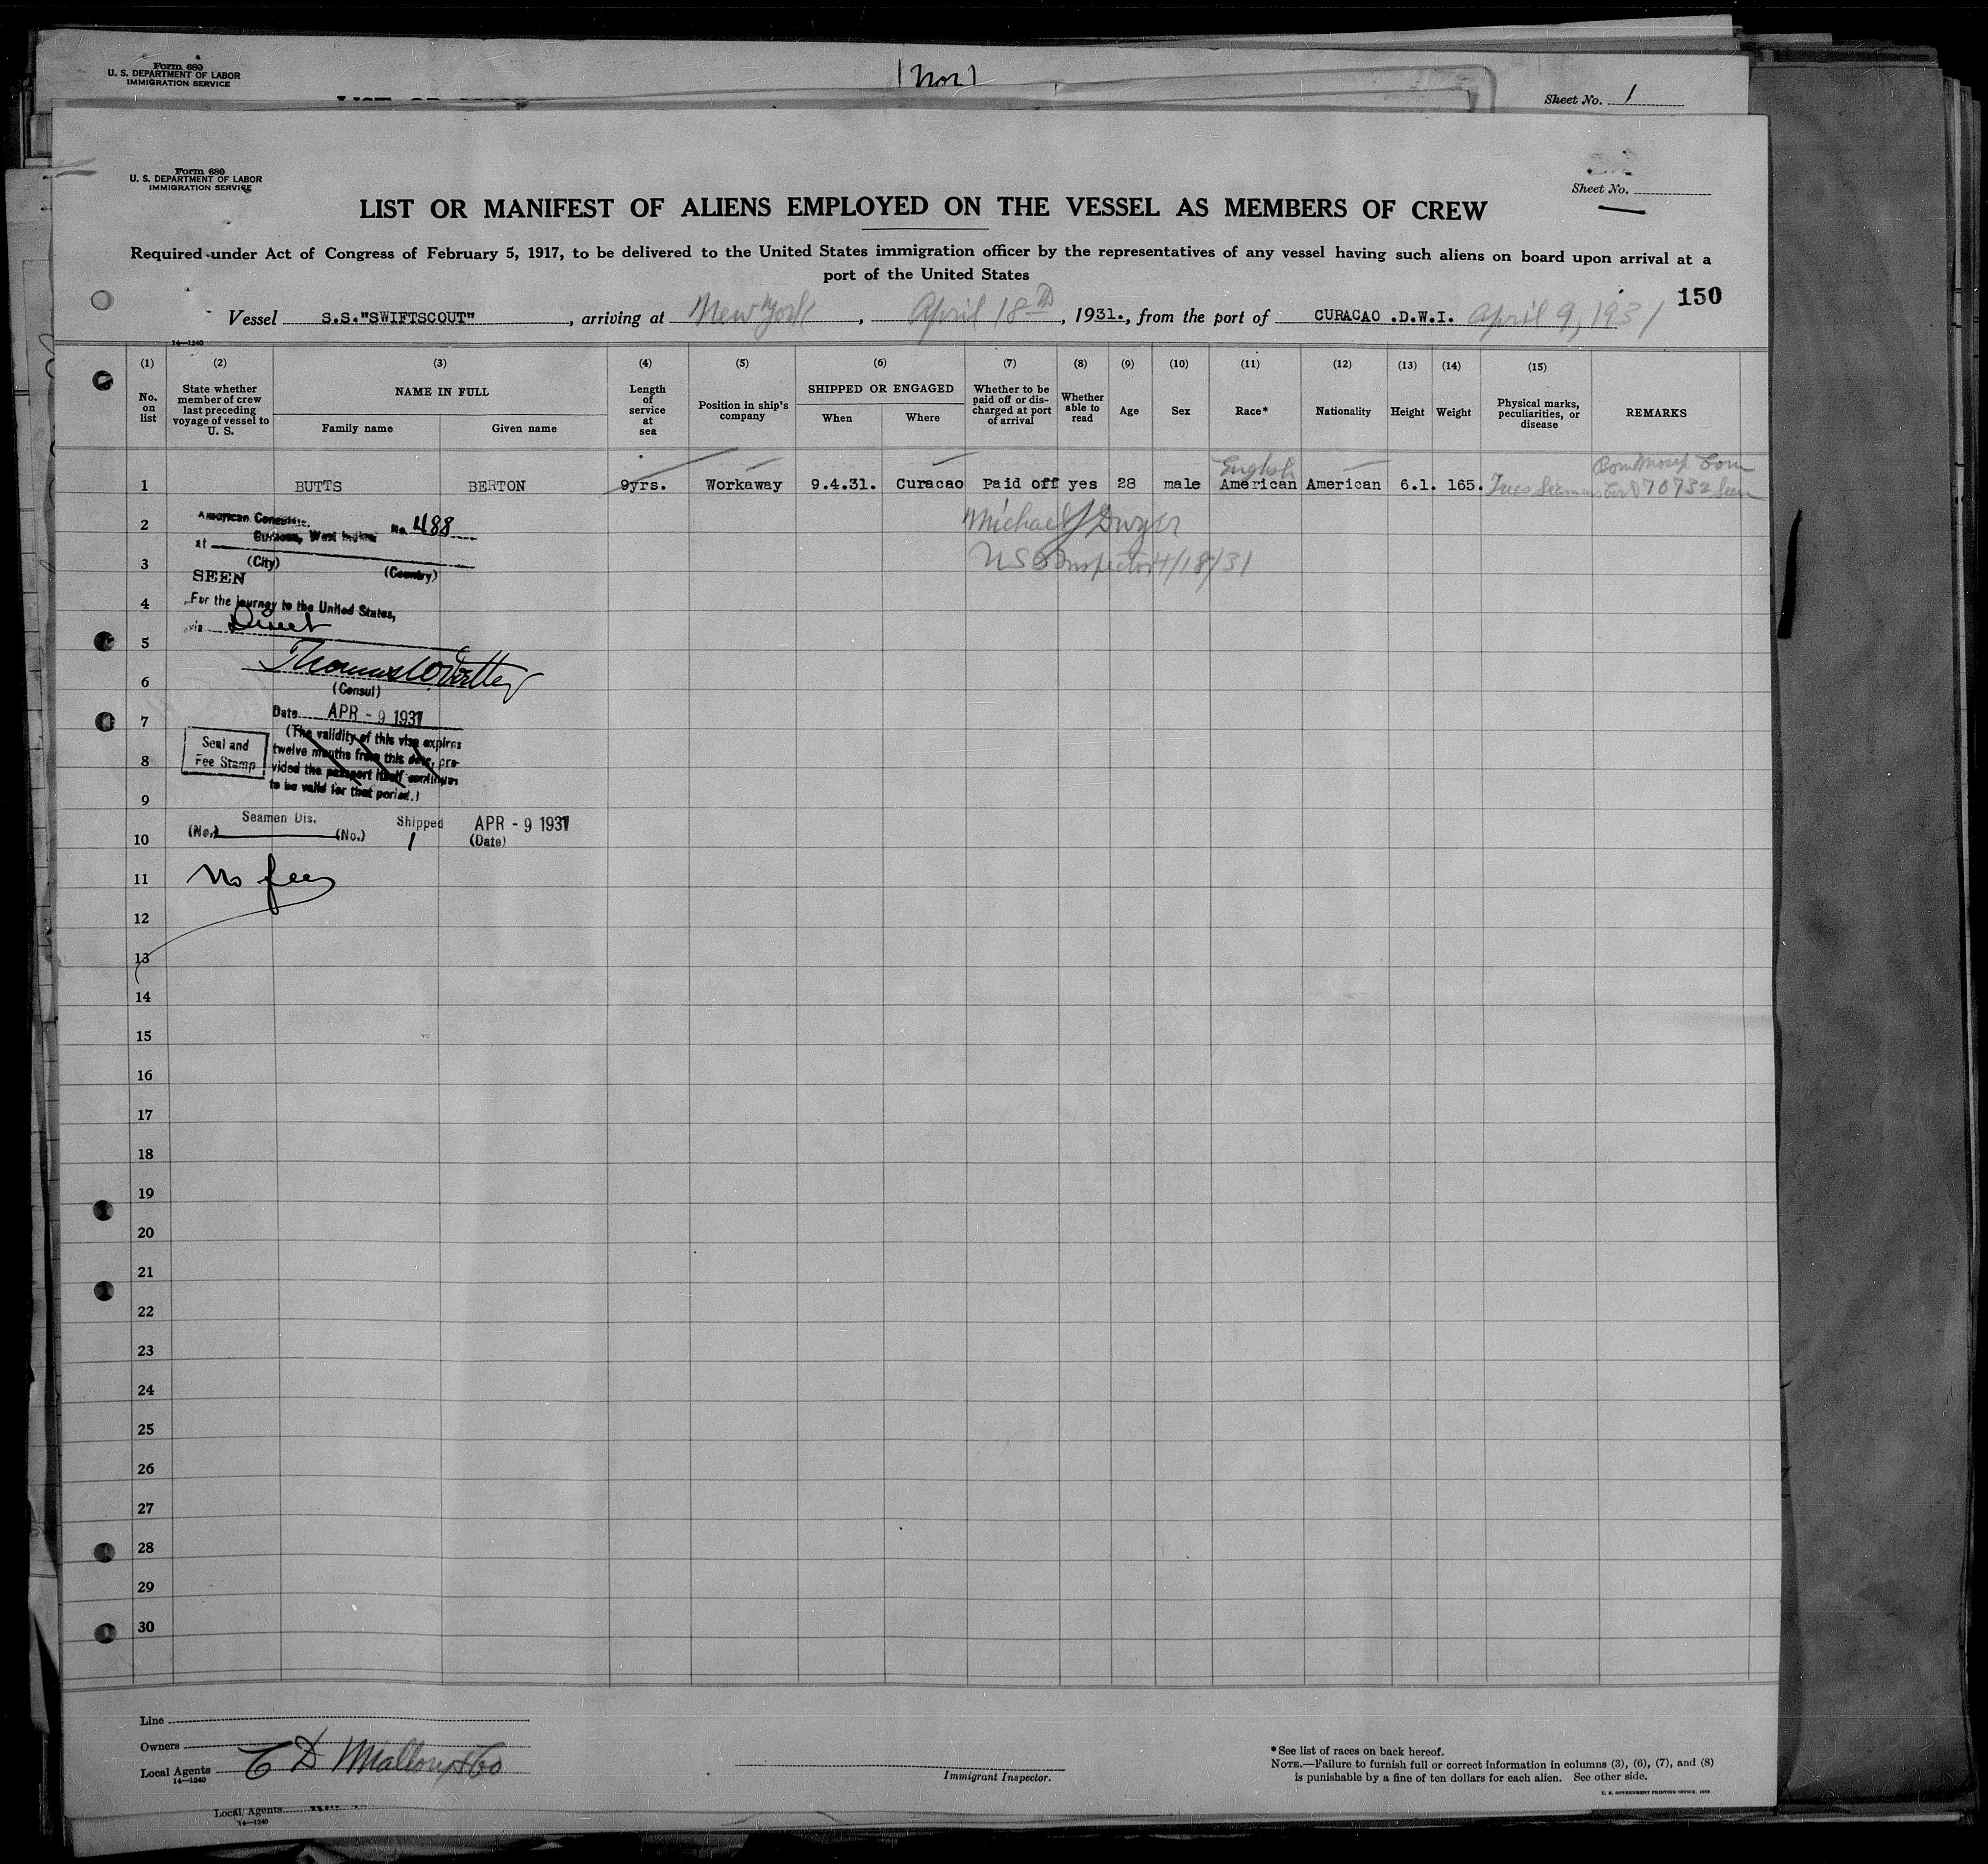 Form 680
U. S. DEPARTMENT OF LABOR
IMMIGRATION SERVICE
Sheet No. 1
Form 680
U. S. DEPARTMENT OF LABOR
IMMIGRATION SERVICE
Sheet No.
LIST OR MANIFEST OF ALIENS EMPLOYED ON THE VESSEL AS MEMBERS OF CREW
Required under Act of Congress of February 5, 1917, to be delivered to the United States immigration officer by the representatives of any vessel having such aliens on board upon arrival at a
port of the United States
150
Vessel S.S."SWIFTSCOUT", arriving at New York, April 18th, 1931., from the port of CURACAO .D.W.I. April 9, 1931
14—1240
(1) (2) (3) (4) (5) (6) (7) (8) (9) (10) (11) (12) (13) (14) (15)
No. on list
State whether member of crew last preceding voyage of vessel to U. S.
NAME IN FULL
Family name
Given name
Length of service at sea
Position in ship's company
SHIPPED OR ENGAGED
When
Where
Whether to be paid off or discharged at port of arrival
Whether able to read
Age
Sex
Race*
Nationality
Height
Weight
Physical marks, peculiarities, or disease
REMARKS
English
1 BUTTS BERTON 9yrs. Workaway 9.4.31. Curacao Paid off yes 28 male American American 6.1. 165. 70732 Seen
2 Michael J Dwyer
3 US Inspector 4/18/31
American Consulate,
Curacao, West Indies No. 488
at
(City) (Country)
SEEN
4
For the journey to the United States,
via Direct
5
6
(Consul)
7
Date APR - 9 1931
(The validity of this visa expires
twelve months from this date, pro-
vided the passport itself continues
to be valid for that period.)
Seal and
Fee Stamp
8
9
Seamen Dis. Shipped APR - 9 1931
(No.) (No.) 1 (Date)
10
11 No fee
12
13
14
15
16
17
18
19
20
21
22
23
24
25
26
27
28
29
30
Line
Owners
Local Agents C D Mallory & Co
14—1240
Immigrant Inspector.
*See list of races on back hereof.
NOTE.—Failure to furnish full or correct information in columns (3), (6), (7), and (8)
is punishable by a fine of ten dollars for each alien. See other side.
U. S. GOVERNMENT PRINTING OFFICE: 1929
Local Agents
14—1240